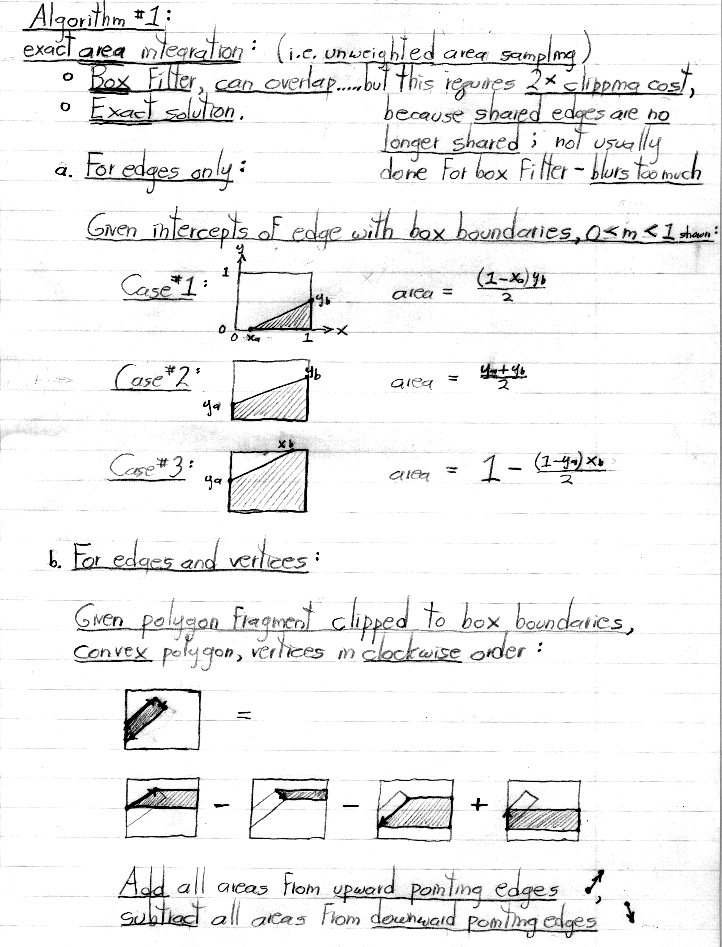 Algorithm #1:
exact area integration: (i.e. unweighted area sampling)
o Box Filter, can overlap.....but this requires 2x clipping cost,
o Exact solution. because shared edges are no
longer shared; not usually
a. For edges only: done for box filter - blurs too much
Given intercepts of edge with box boundaries, 0<m<1 shown:
y
1
Case #1: yb area = (1-xa)yb / 2
0
0 xa 1 x
Case #2: yb area = ya+yb / 2
ya
Case #3: xb area = 1 - (1-ya)xb / 2
ya
b. For edges and vertices:
Given polygon fragment clipped to box boundaries,
convex polygon, vertices in clockwise order:
=
- - +
Add all areas from upward pointing edges ,
subtract all areas from downward pointing edges